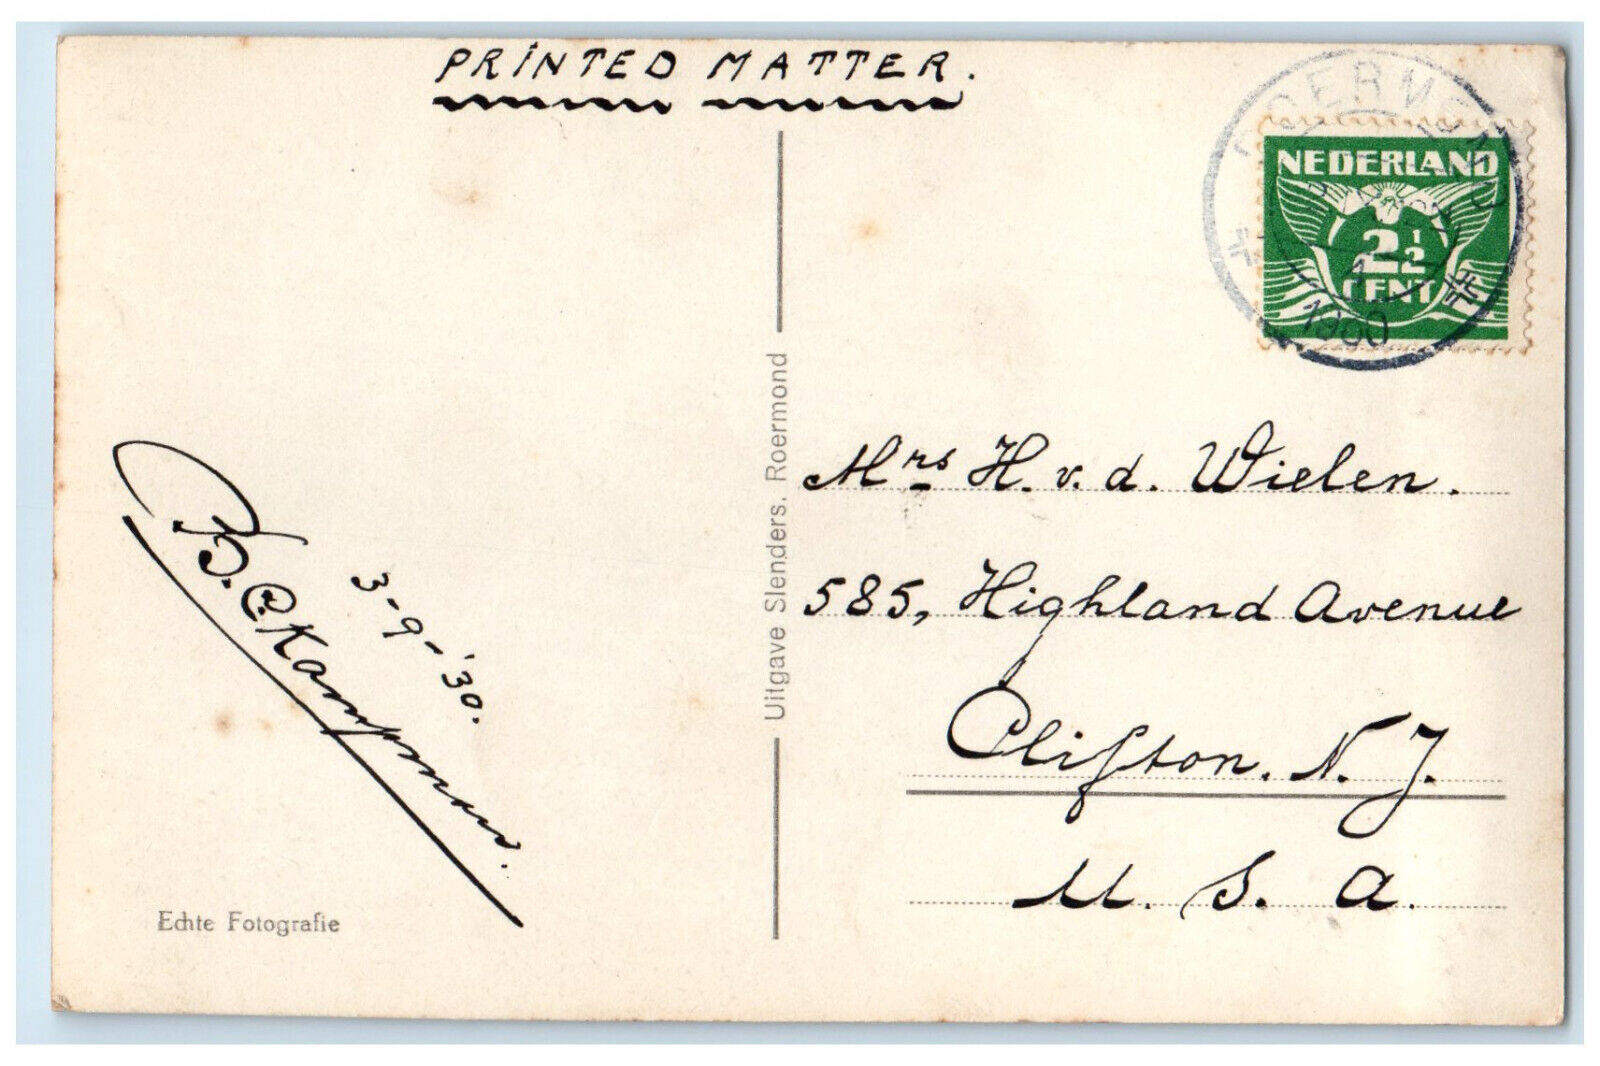 PRINTED MATTER.
ROERMOND
1930
NEDERLAND
2½
CENT
Mrs H. v. d. Wielen.
585, Highland Avenue
Clifton. N. J.
U. S. A.
Uitgave Slenders, Roermond
3-9-'30.
Echte Fotografie